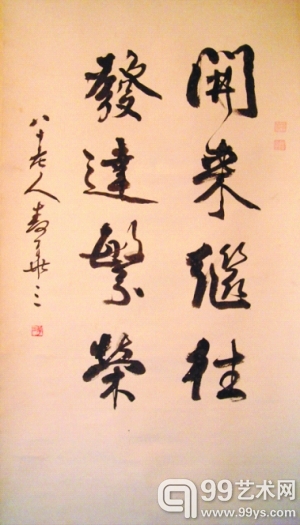 開來繼往
發達繁榮
八十老人
99艺术网
www.99ys.com